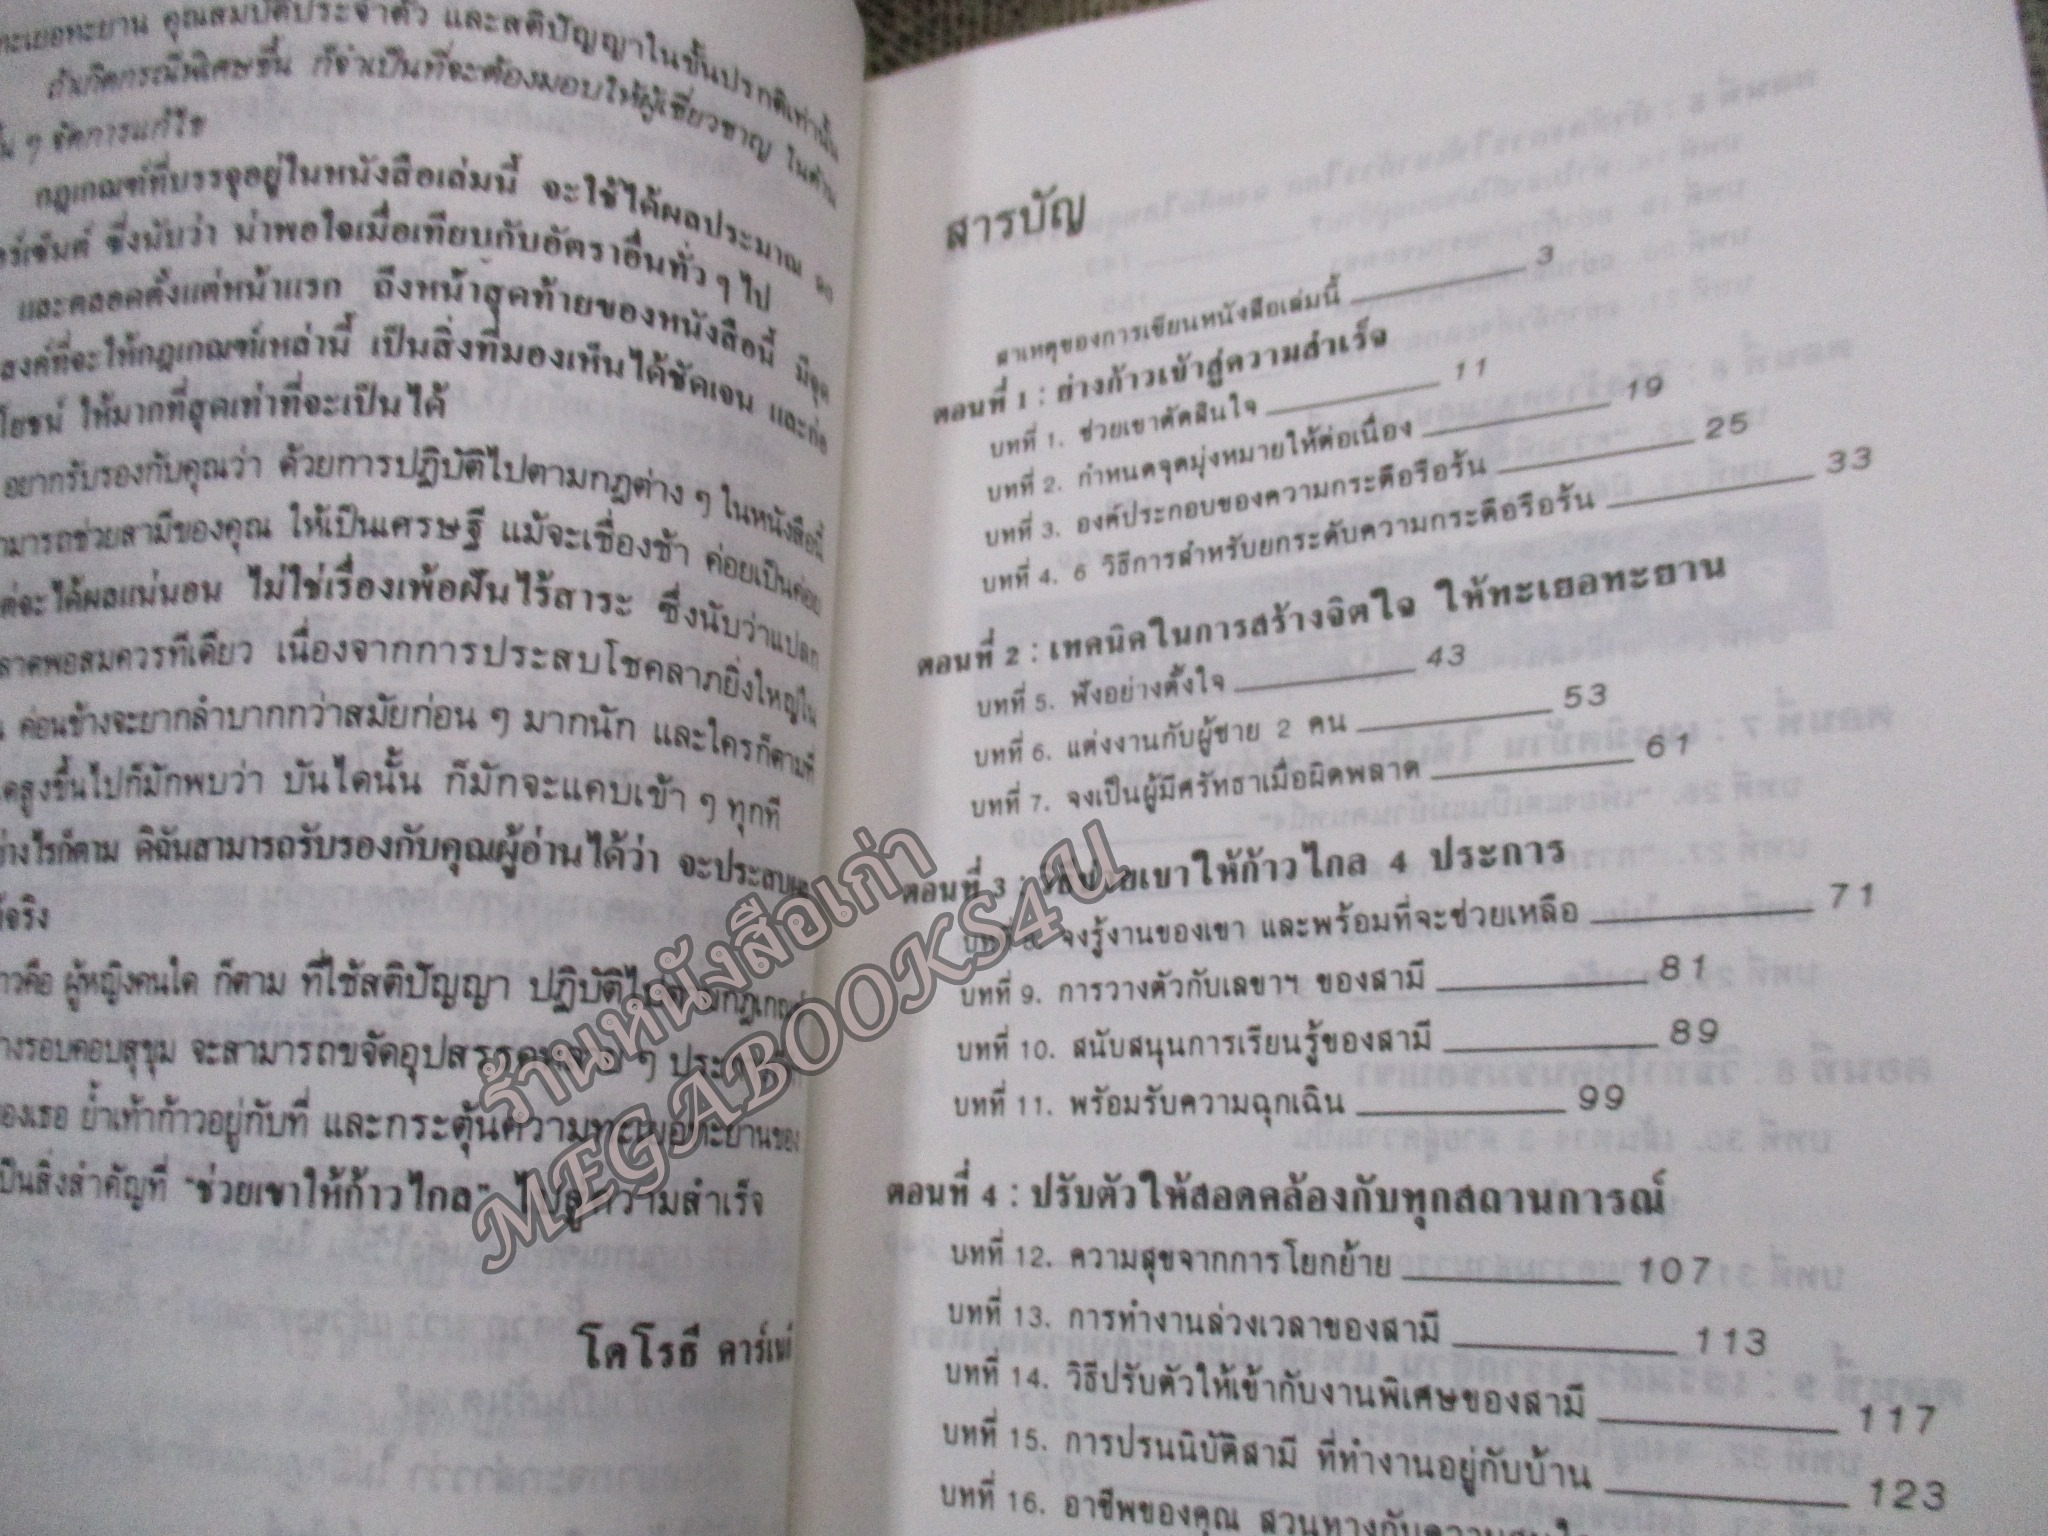 ทะเยอทะยาน คุณสมบัติประจำตัว และสติปัญญาในขั้นปรกติเท่านั้น
ถ้าเกิดกรณีพิเศษขึ้น ก็จำเป็นที่จะต้องมอบให้ผู้เชี่ยวชาญ ในด้าน
นั้น ๆ จัดการแก้ไข
กฎเกณฑ์ที่บรรจุอยู่ในหนังสือเล่มนี้ จะใช้ได้ผลประมาณ
ซึ่งนับว่า น่าพอใจเมื่อเทียบกับอัตราอื่นทั่ว ๆ ไป
และตลอดตั้งแต่หน้าแรก ถึงหน้าสุดท้ายของหนังสือนี้ มีจุด
สงค์ที่จะให้กฎเกณฑ์เหล่านี้ เป็นสิ่งที่มองเห็นได้ชัดเจน และก่อ
โยชน์ ให้มากที่สุดเท่าที่จะเป็นได้
อยากรับรองกับคุณว่า ด้วยการปฏิบัติไปตามกฎต่าง ๆ ในหนังสือนี้
ามารถช่วยสามีของคุณ ให้เป็นเศรษฐี แม้จะเชื่องช้า ค่อยเป็นค่อย
ต่จะได้ผลแน่นอน ไม่ใช่เรื่องเพ้อฝันไร้สาระ ซึ่งนับว่าแปลก
ลาดพอสมควรทีเดียว เนื่องจากการประสบโชคลาภยิ่งใหญ่ใน
ค่อนข้างจะยากลำบากกว่าสมัยก่อน ๆ มากนัก และใครก็ตามที่
ดสูงขึ้นไปก็มักพบว่า บันไดนั้น ก็มักจะแคบเข้า ๆ ทุกที
ย่างไรก็ตาม ดิฉันสามารถรับรองกับคุณผู้อ่านได้ว่า จะประสบผล
ด้จริง
าวคือ ผู้หญิงคนใด ก็ตาม ที่ใช้สติปัญญา ปฏิบัติไปตามกฎเกณฑ์
างรอบคอบสุขุม จะสามารถขจัดอุปสรรค ๆ
องเธอ ย่ำเท้าก้าวอยู่กับที่ และกระตุ้นความทะเยอทะยานของ
ป็นสิ่งสำคัญที่ "ช่วยเขาให้ก้าวไกล" ไปสู่ความสำเร็จ
โดโรธี คาร์เนกี
สารบัญ
สาเหตุของการเขียนหนังสือเล่มนี้ 3
ตอนที่ 1 : ย่างก้าวเข้าสู่ความสำเร็จ
บทที่ 1. ช่วยเขาตัดสินใจ 11
บทที่ 2. กำหนดจุดมุ่งหมายให้ต่อเนื่อง 19
บทที่ 3. องค์ประกอบของความกระตือรือร้น 25
บทที่ 4. 6 วิธีการสำหรับยกระดับความกระตือรือร้น 33
ตอนที่ 2 : เทคนิคในการสร้างจิตใจ ให้ทะเยอทะยาน
บทที่ 5. ฟังอย่างตั้งใจ 43
บทที่ 6. แต่งงานกับผู้ชาย 2 คน 53
บทที่ 7. จงเป็นผู้มีศรัทธาเมื่อผิดพลาด 61
ตอนที่ 3 : วิธีช่วยเขาให้ก้าวไกล 4 ประการ
บทที่ 8. จงรู้งานของเขา และพร้อมที่จะช่วยเหลือ 71
บทที่ 9. การวางตัวกับเลขาฯ ของสามี 81
บทที่ 10. สนับสนุนการเรียนรู้ของสามี 89
บทที่ 11. พร้อมรับความฉุกเฉิน 99
ตอนที่ 4 : ปรับตัวให้สอดคล้องกับทุกสถานการณ์
บทที่ 12. ความสุขจากการโยกย้าย 107
บทที่ 13. การทำงานล่วงเวลาของสามี 113
บทที่ 14. วิธีปรับตัวให้เข้ากับงานพิเศษของสามี 117
บทที่ 15. การปรนนิบัติสามี ที่ทำงานอยู่กับบ้าน 123
บทที่ 16. อาชีพของคุณ สวนทางกับความสนใจ
ร้านหนังสือเก่า
MEGABOOKS4U